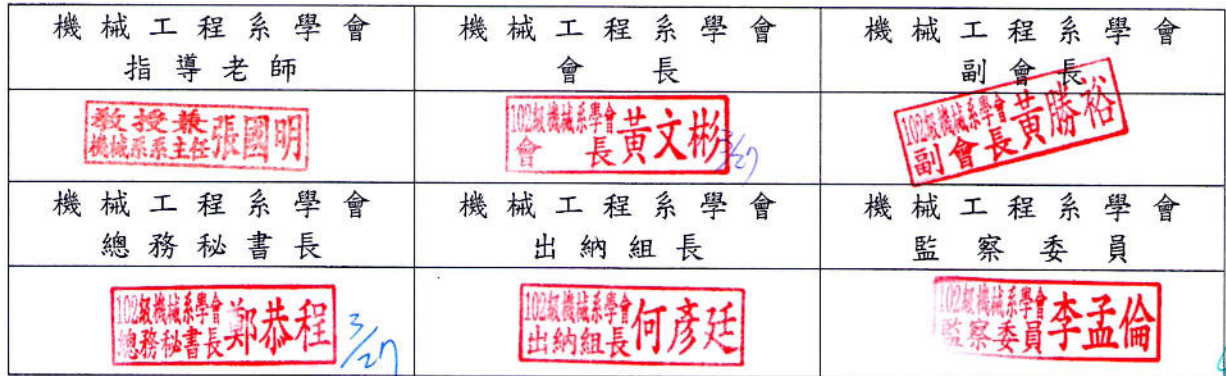 機械工程系學會
指導老師
機械工程系學會
會長
機械工程系學會
副會長
教授兼
機械系系主任張國明
102級機械系學會
會長黃文彬
3/27
102級機械系學會
副會長黃勝裕
機械工程系學會
總務秘書長
機械工程系學會
出納組長
機械工程系學會
監察委員
102級機械系學會
總務秘書長鄭恭程
3/27
102級機械系學會
出納組長何彥廷
102級機械系學會
監察委員李孟倫